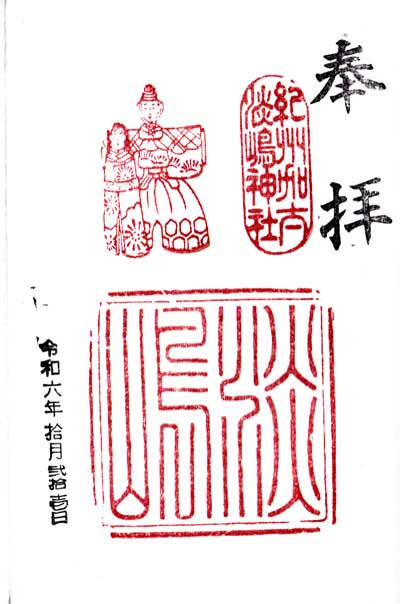 奉拝
紀州加太
淡嶋神社
淡嶋
令和六年拾月弐拾壱日